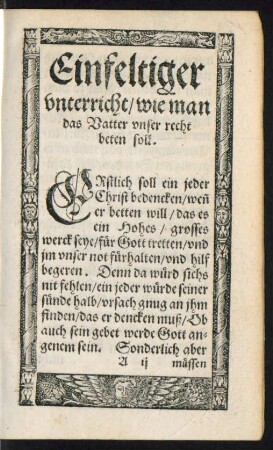 Einfeltiger
vnterricht/ wie man
das Vatter vnser recht
beten soll.
ERstlich soll ein jeder
Christ bedencken/ weñ
er betten will/ das es
ein Hohes/ grosses
werck seye/ für Gott tretten/ vnd
jm vnser not fürhalten/ vnd hilf
begeren. Denn da würd sichs
nit fehlen/ ein jeder würde seiner
sünde halb/ vrsach gnug an jhm
finden/ das er dencken muß/ Ob
auch sein gebet werde Gott an-
genem sein. Sonderlich aber
A ij müssen